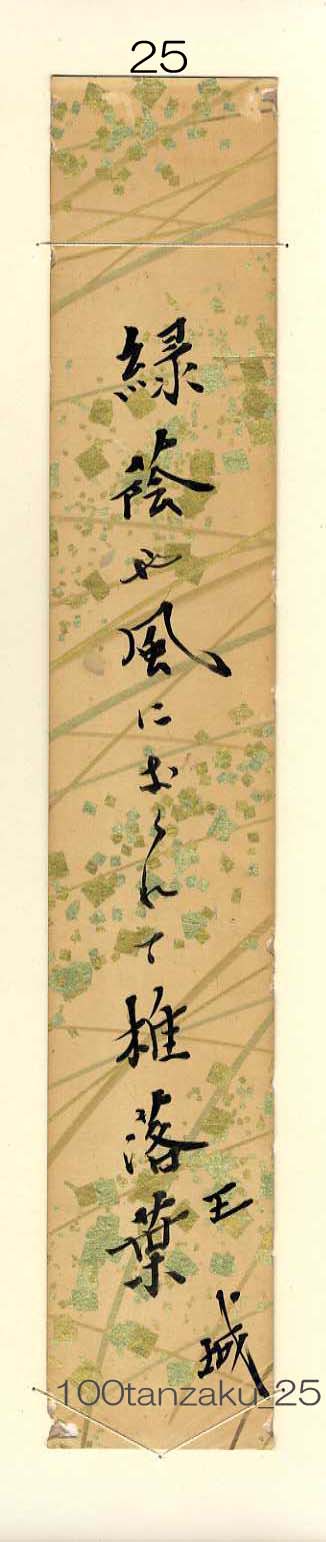 25
緑蔭や風におくれて椎落葉
王城
100tanzaku_25